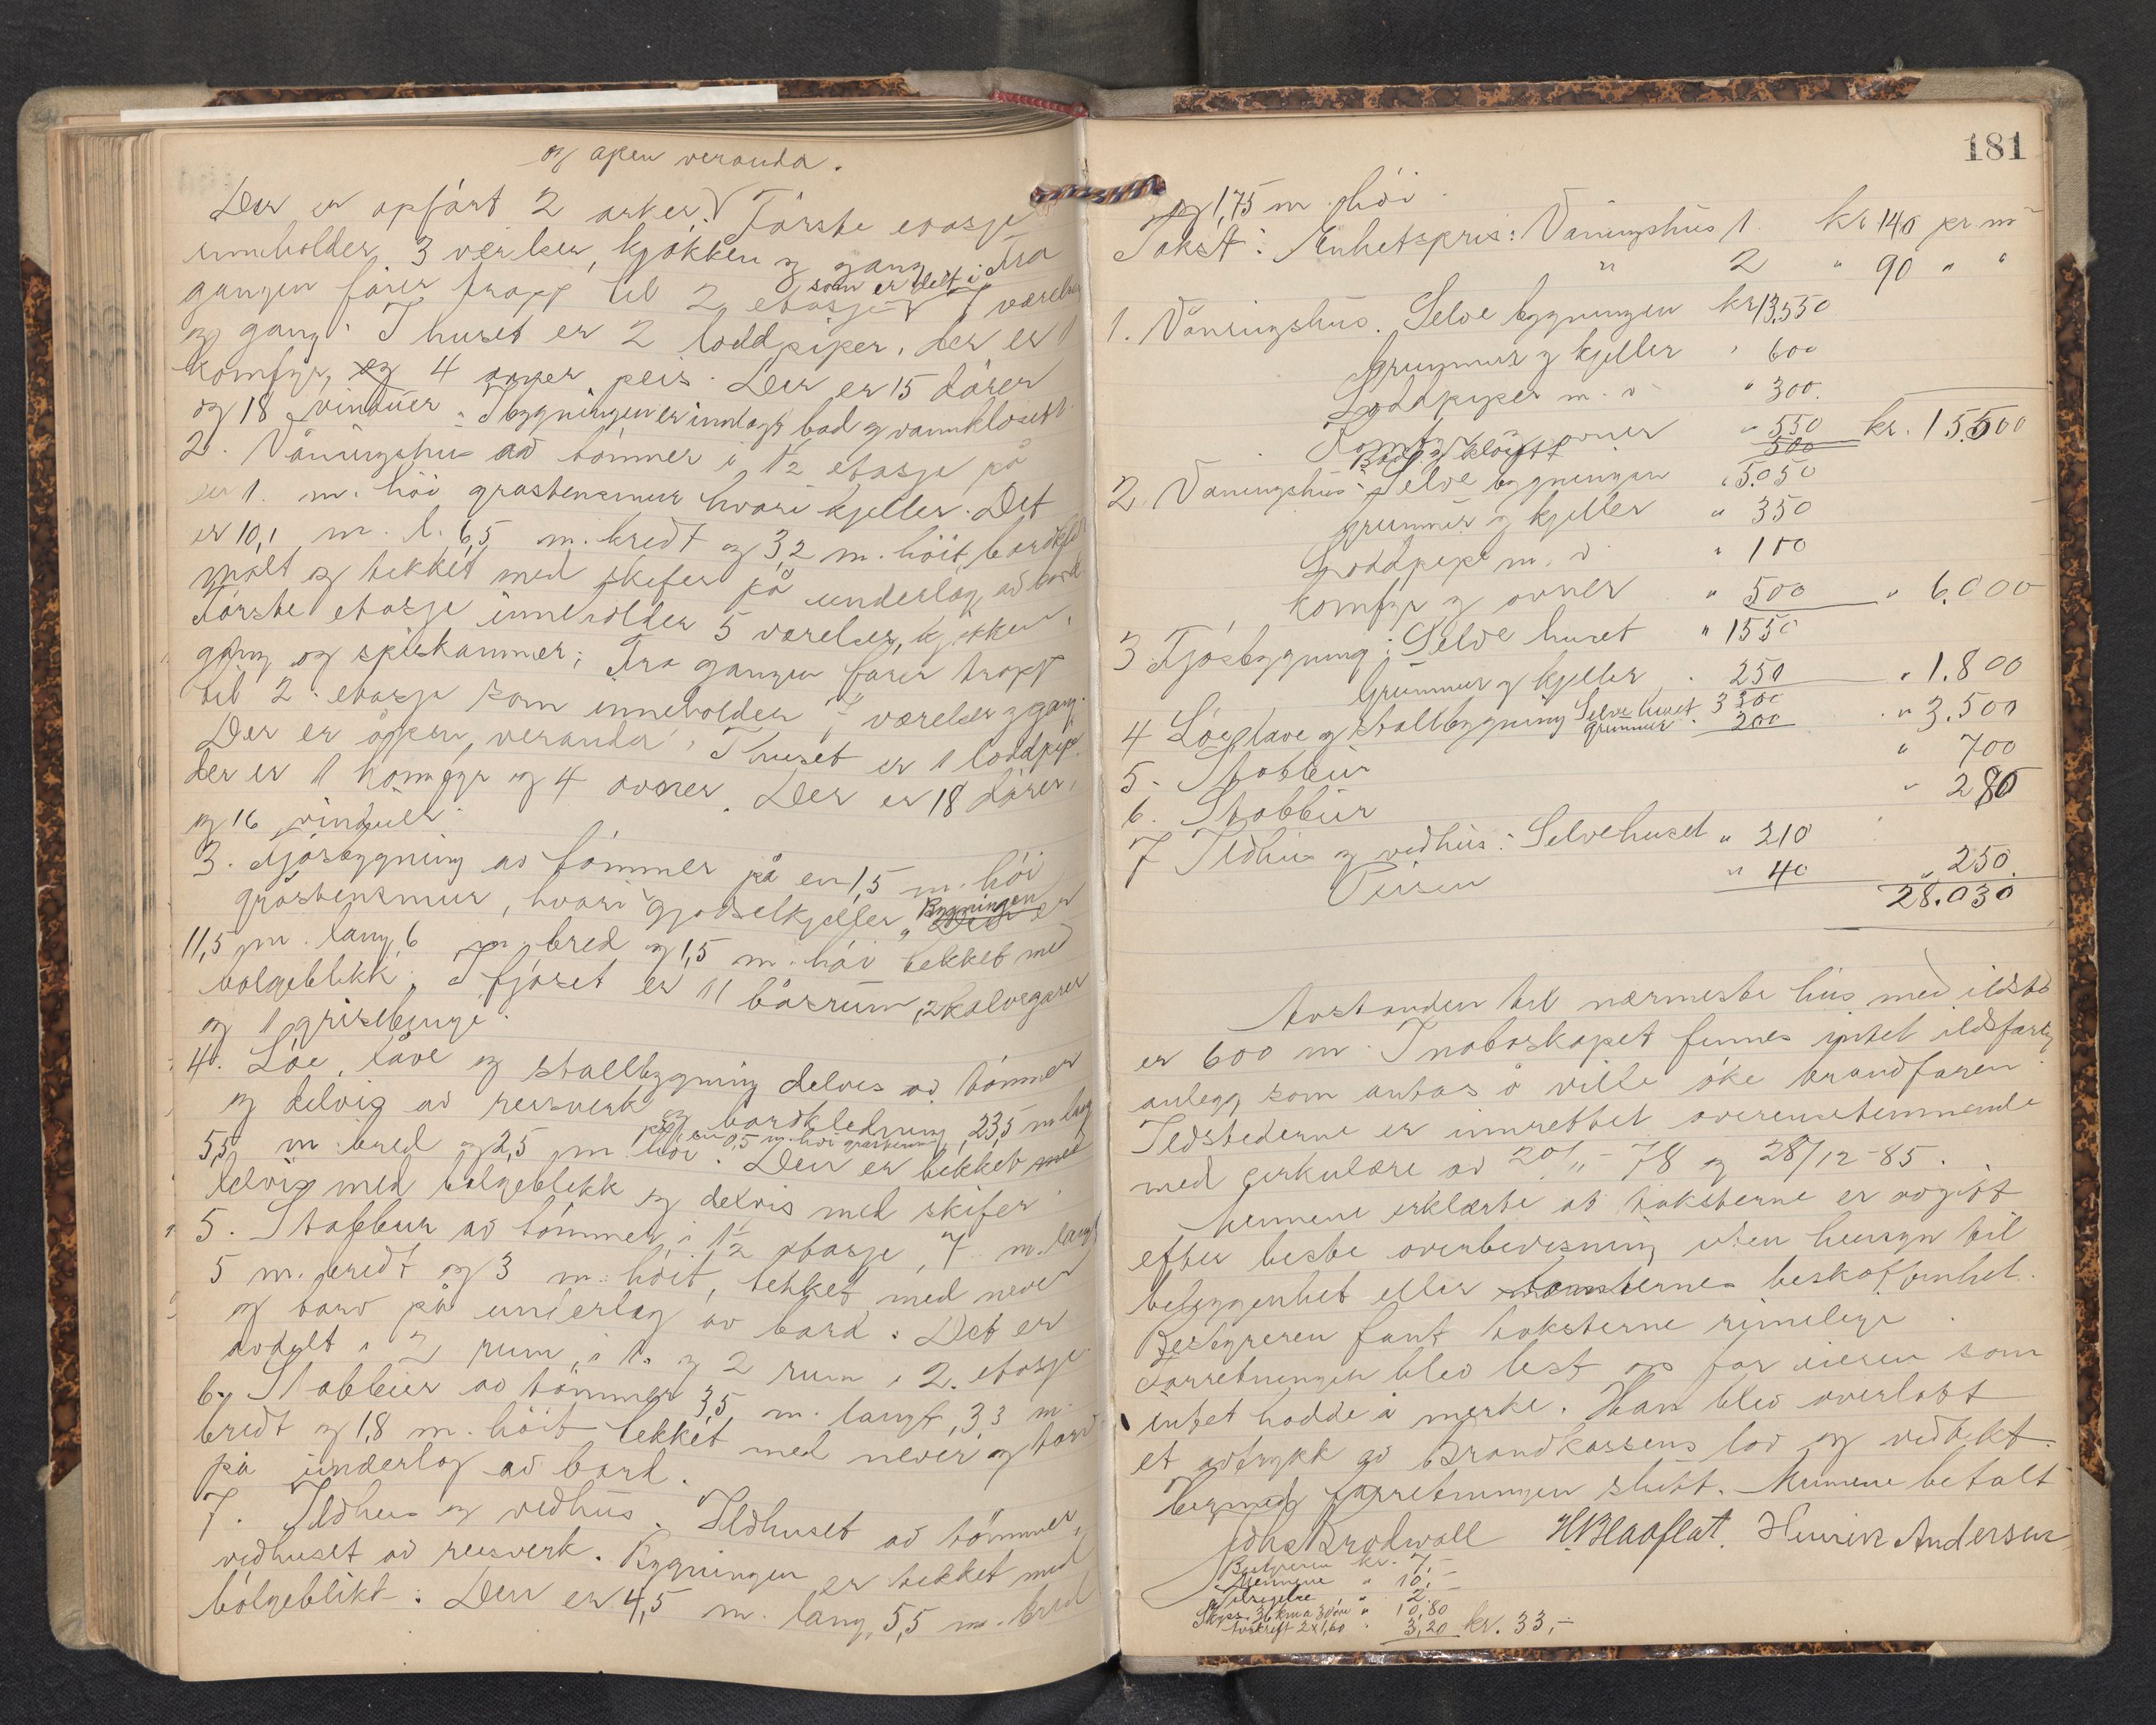 og åpen veranda.
Der er opført 2 arker. Første etasje
inneholder 3 værelser, kjøkken og gang. Fra
gangen fører trapp til 2 etasje som er delt i 7 værelser
og gang. I huset er 2 loddpiper. Der er 1
komfyr, og 4 ovner, peis. Der er 15 dører
og 18 vinduer. I bygningen er innlagt bad og vannklosett.
2. Våningshus av tømmer i 1½ etasje på
en 1. m. høi gråstensmur hvori kjeller. Det
er 10,1 m. l. 6,5 m. bredt og 3,2 m. høit, bordkledt
malt og tekket med skifer på underlag av bord.
Første etasje inneholder 5 værelser, kjøkken,
gang og spiskammer; Fra gangen fører trapp
til 2. etasje som inneholder værelser og gang.
Der er åpen veranda. I huset er 1 loddpipe.
der er 1 komfyr og 4 ovner. Der er 18 dører,
og 16 vinduer.
3. Fjøsbygning av tømmer på en 1,5 m. høi
gråstensmur, hvori gjødselkjeller. Bygningen er
11,5 m. lang, 6 m. bred og 1,5 m. høi tekket med
bølgeblikk. I fjøset er 11 båsrum, 2 kalvegarer
og 1 grisebinge.
4. Løe, låve og stallbygning delvis av tømmer
og delvis av reisverk og bordkledning, 23,5 m lang
5,5 m. bred og 2,5 m. høi på en 0,5 m. høi gråstensmur. Den er tekket med
delvis med bølgeblikk og delvis med skifer.
5. Stabbur av tømmer i 1½ etasje, 7 m. langt
5 m. bredt og 3 m. høit, tekket med never
og torv på underlag av bord. Det er
avdelt i 2 rum i 1. og 2 rum i 2. etasje.
6. Stabbur av tømmer 3,5 m. langt, 3,3 m.
bredt og 1,8 m. høit tekket med never og torv
på underlag av bord.
7. Ildhus og vedhus. Ildhuset av tømmer,
vedhuset av reisverk. Bygningen er tekket med
bølgeblikk. Den er 4,5 m. lang, 5,5 m. bred
181
og 1,75 m. høi.
Takst: Enhetspris: Våningshus 1. kr 140 pr. m²
" 2 " 90 " "
1. Våningshus. Selve bygningen kr 13.550
Grunnmur og kjeller " 600
Loddpiper m. v " 300.
Komfyr og ovner " 550 kr. 15500
Bad og klosett 500
2. Våningshus: Selve bygningen " 5.050
Grunnmur og kjeller " 350
Loddpipe m. v. " 100
Komfyr og ovner " 500 " 6.000
3. Fjøsbygning: Selve huset " 1550
Grunnmur og kjeller " 250 " 1.800
4 Løe, låve og stallbygning Selve huset 3300
grunnmur 200 " 3.500
5. Stabbur " 700
6. Stabbur " 280
7 Ildhus og vedhus: Selve huset " 210
Peisen " 40 " 250.
28.030
Avstanden til nærmeste hus med ildsted
er 600 m. I naboskapet finnes intet ildsfarlig
anlegg som antas å ville øke brandfaren.
Ildstederne er innrettet overensstemmende
med cirkulære av 20/11-78 og 28/12-85.
Mennene erklærte at taksterne er avgitt
efter beste overbevisning uten hensyn til
beliggenhet eller tomternes beskaffenhet.
Bestyreren fant taksterne rimelige.
Forretningen blev lest op for eieren som
intet hadde å merke. Han blev overlatt
et avtrykk av Brandkassens lov og vedtekt.
Hermed forretningen slutt. Mennene betalt
Johs Brodwall H. Blaaflat. Henrik Andersen
Bestyreren kr. 7,-
Mennene " 10,-
Utregelse " 2,-
Skyss 36 km a 30 øre " 10,80
Avskrift 2x1,60 " 3,20 kr. 33,-